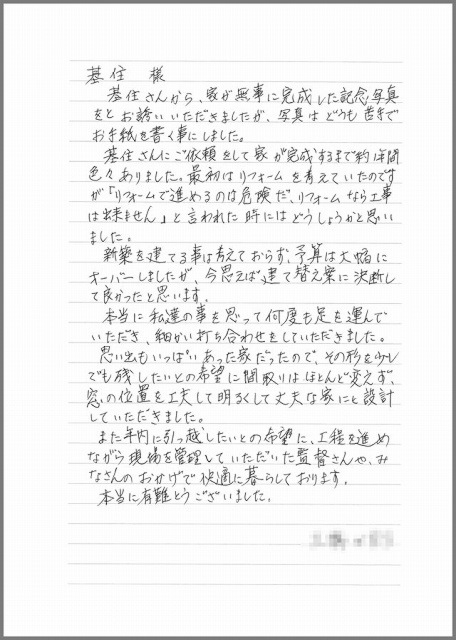 基住 様
基住さんから、家が無事に完成した記念写真
をとお誘いいただきましたが、写真はどうも苦手で
お手紙を書く事にしました。
基住さんにご依頼をして家が完成するまで約1年間
色々ありました。最初はリフォームを考えていたのです
が「リフォームで進めるのは危険だ、リフォームなら工事
は出来ません」と言われた時にはどうしようかと思い
ました。
新築を建てる事は考えておらず、予算は大幅に
オーバーしましたが、今思えば建て替え案に決断し
て良かったと思います。
本当に私達の事を思って何度も足を運んで
いただき、細かい打ち合わせをしていただきました。
思い出もいっぱいあった家だったので、その形を少し
でも残したいとの希望に間取りはほとんど変えず、
窓の位置を工夫して明るくして丈夫な家にと設計
していただきました。
また年内に引っ越したいとの希望に、工程を進め
ながら現場を管理していただいた監督さんや、み
なさんのおかげで快適に暮らしております。
本当に有難とうございました。